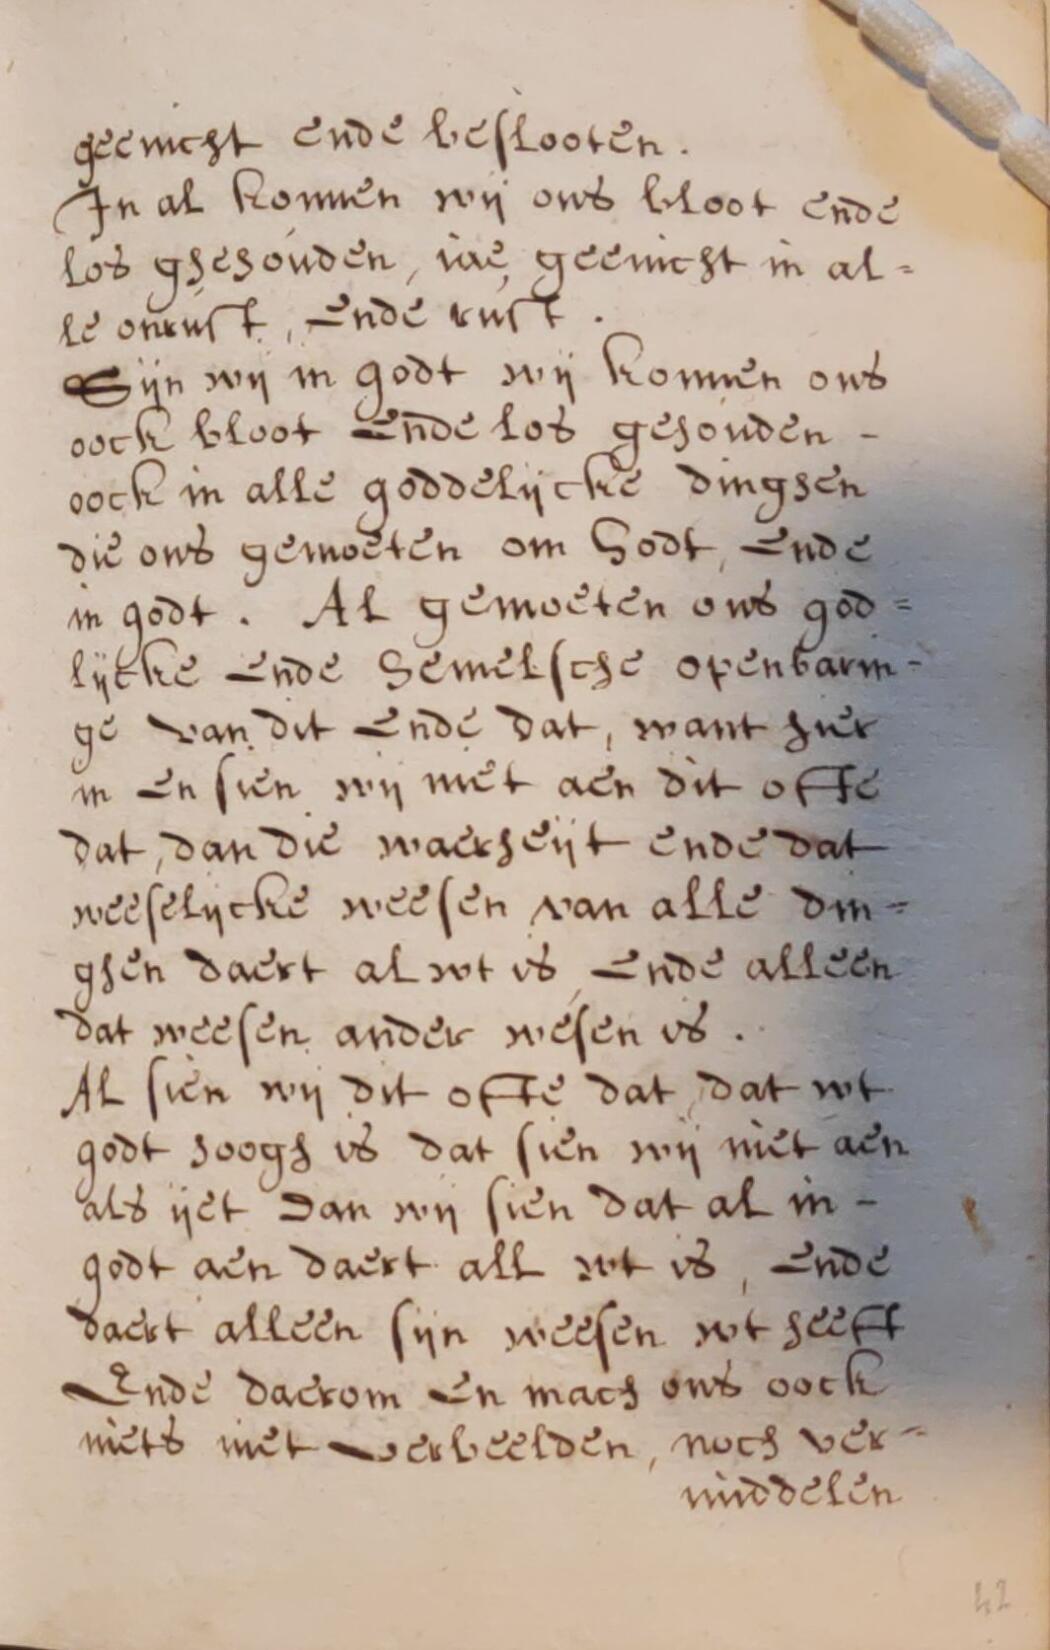 geenicht ende beslooten.
In al konnen wij ons bloot ende
los ghehouden, iae, geenicht in al=
le onrust, Ende rust.
Sijn wij in godt wij konnen ons
oock bloot Ende los gehouden -
oock in alle goddelijcke dinghen
die ons gemoeten om Godt, Ende
in godt. Al gemoeten ons god=
lijcke Ende hemelsche openbarin-
ge van dit Ende dat, want hier
in En sien wij niet aen dit offte
dat, dan die waerheijt ende dat
weeselijcke weesen van alle din=
ghen daert al wt is, Ende alleen
dat weesen ander wesen is.
Al sien wij dit offte dat, dat wt
godt hoogh is dat sien wij niet aen
als ijet Dan wij sien dat al in -
godt aen daert all wt is, Ende
daert alleen sijn weesen wt heefft
Ende daerom En mach ons oock
niets niet verbeelden, noch ver=
middelen
42